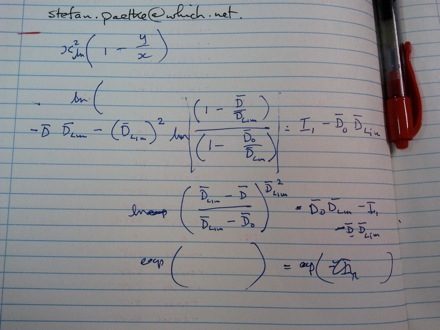 stefan.paetke@which.net.
x² ln (1 - y/x)
ln (
- D̄ D̄Lim - (D̄Lim)² ln | (1 - D̄/D̄Lim) / (1 - D̄₀/D̄Lim) | = I₁ - D̄₀ D̄Lim
((D̄Lim - D̄) / (D̄Lim - D̄₀))^D̄Lim² = D̄₀ D̄Lim - I₁
- D̄ D̄Lim
exp ( ) = exp ( )